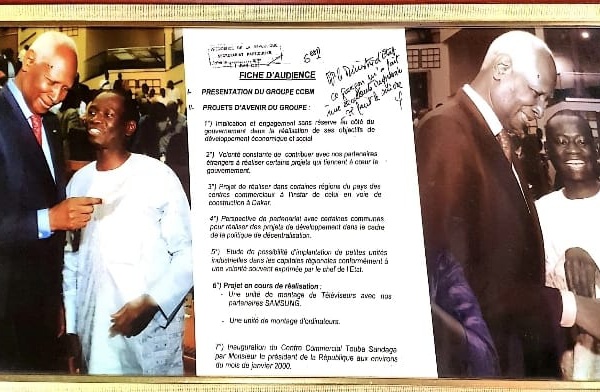 PRESIDENCE DE LA REPUBLIQUE
SECRETARIAT PARTICULIER
FICHE D'AUDIENCE
I- PRESENTATION DU GROUPE CCBM
II- PROJETS D'AVENIR DU GROUPE :
1°) Implication et engagement sans
réserve au côté du
gouvernement dans la réalisation de ses objectifs de
développement économique et social
2°) Volonté constante de contribuer avec nos partenaires
étrangers à réaliser certains projets qui tiennent à cœur le
gouvernement.
3°) Projet de réaliser dans certaines régions du pays des
centres commerciaux à l'instar de celui en voie de
construction à Dakar.
4°) Perspective de partenariat avec certaines communes
pour réaliser des projets de développement dans le cadre
de la politique de décentralisation.
5°) Etude de possibilité d'implantation de petites unités
industrielles dans les capitales régionales conformément à
une volonté souvent exprimée par le chef de l'Etat.
6°) Projet en cours de réalisation :
- Une unité de montage de Téléviseurs avec nos
partenaires SAMSUNG.
- Une unité de montage d'ordinateurs.
7°) Inauguration du Centre Commercial Touba Sandaga
par Monsieur le président de la République aux environs
du mois de janvier 2000.